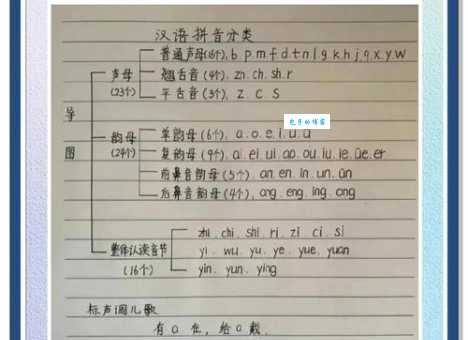 汉语拼音分类
普通声母(16个), b p m f d t n l g k h j q x y w
声母 翘舌音 (4个), zh. ch. sh. r
(23个) 平舌音 (3个), z. c. s
导
单韵母 (6个), a. o. e. i. u. ü
韵母 复韵母 (9个), ai. ei. ui. ao. ou. iu. ie. üe. er
图 (24个) 前鼻音韵母 (5个) an. en. in. un. ün
后鼻音韵母 (4个), ang. eng. ing. ong
zhi. chi. shi. ri. zi. ci. si
整体认读音节 yi. wu. yu. ye. yue. yuan
(16个) yin. yun. ying
标声调儿歌
有a在, 给a戴.